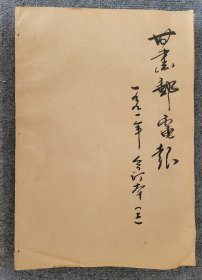 甘肃邮电报
一九九一年 合订本（上）